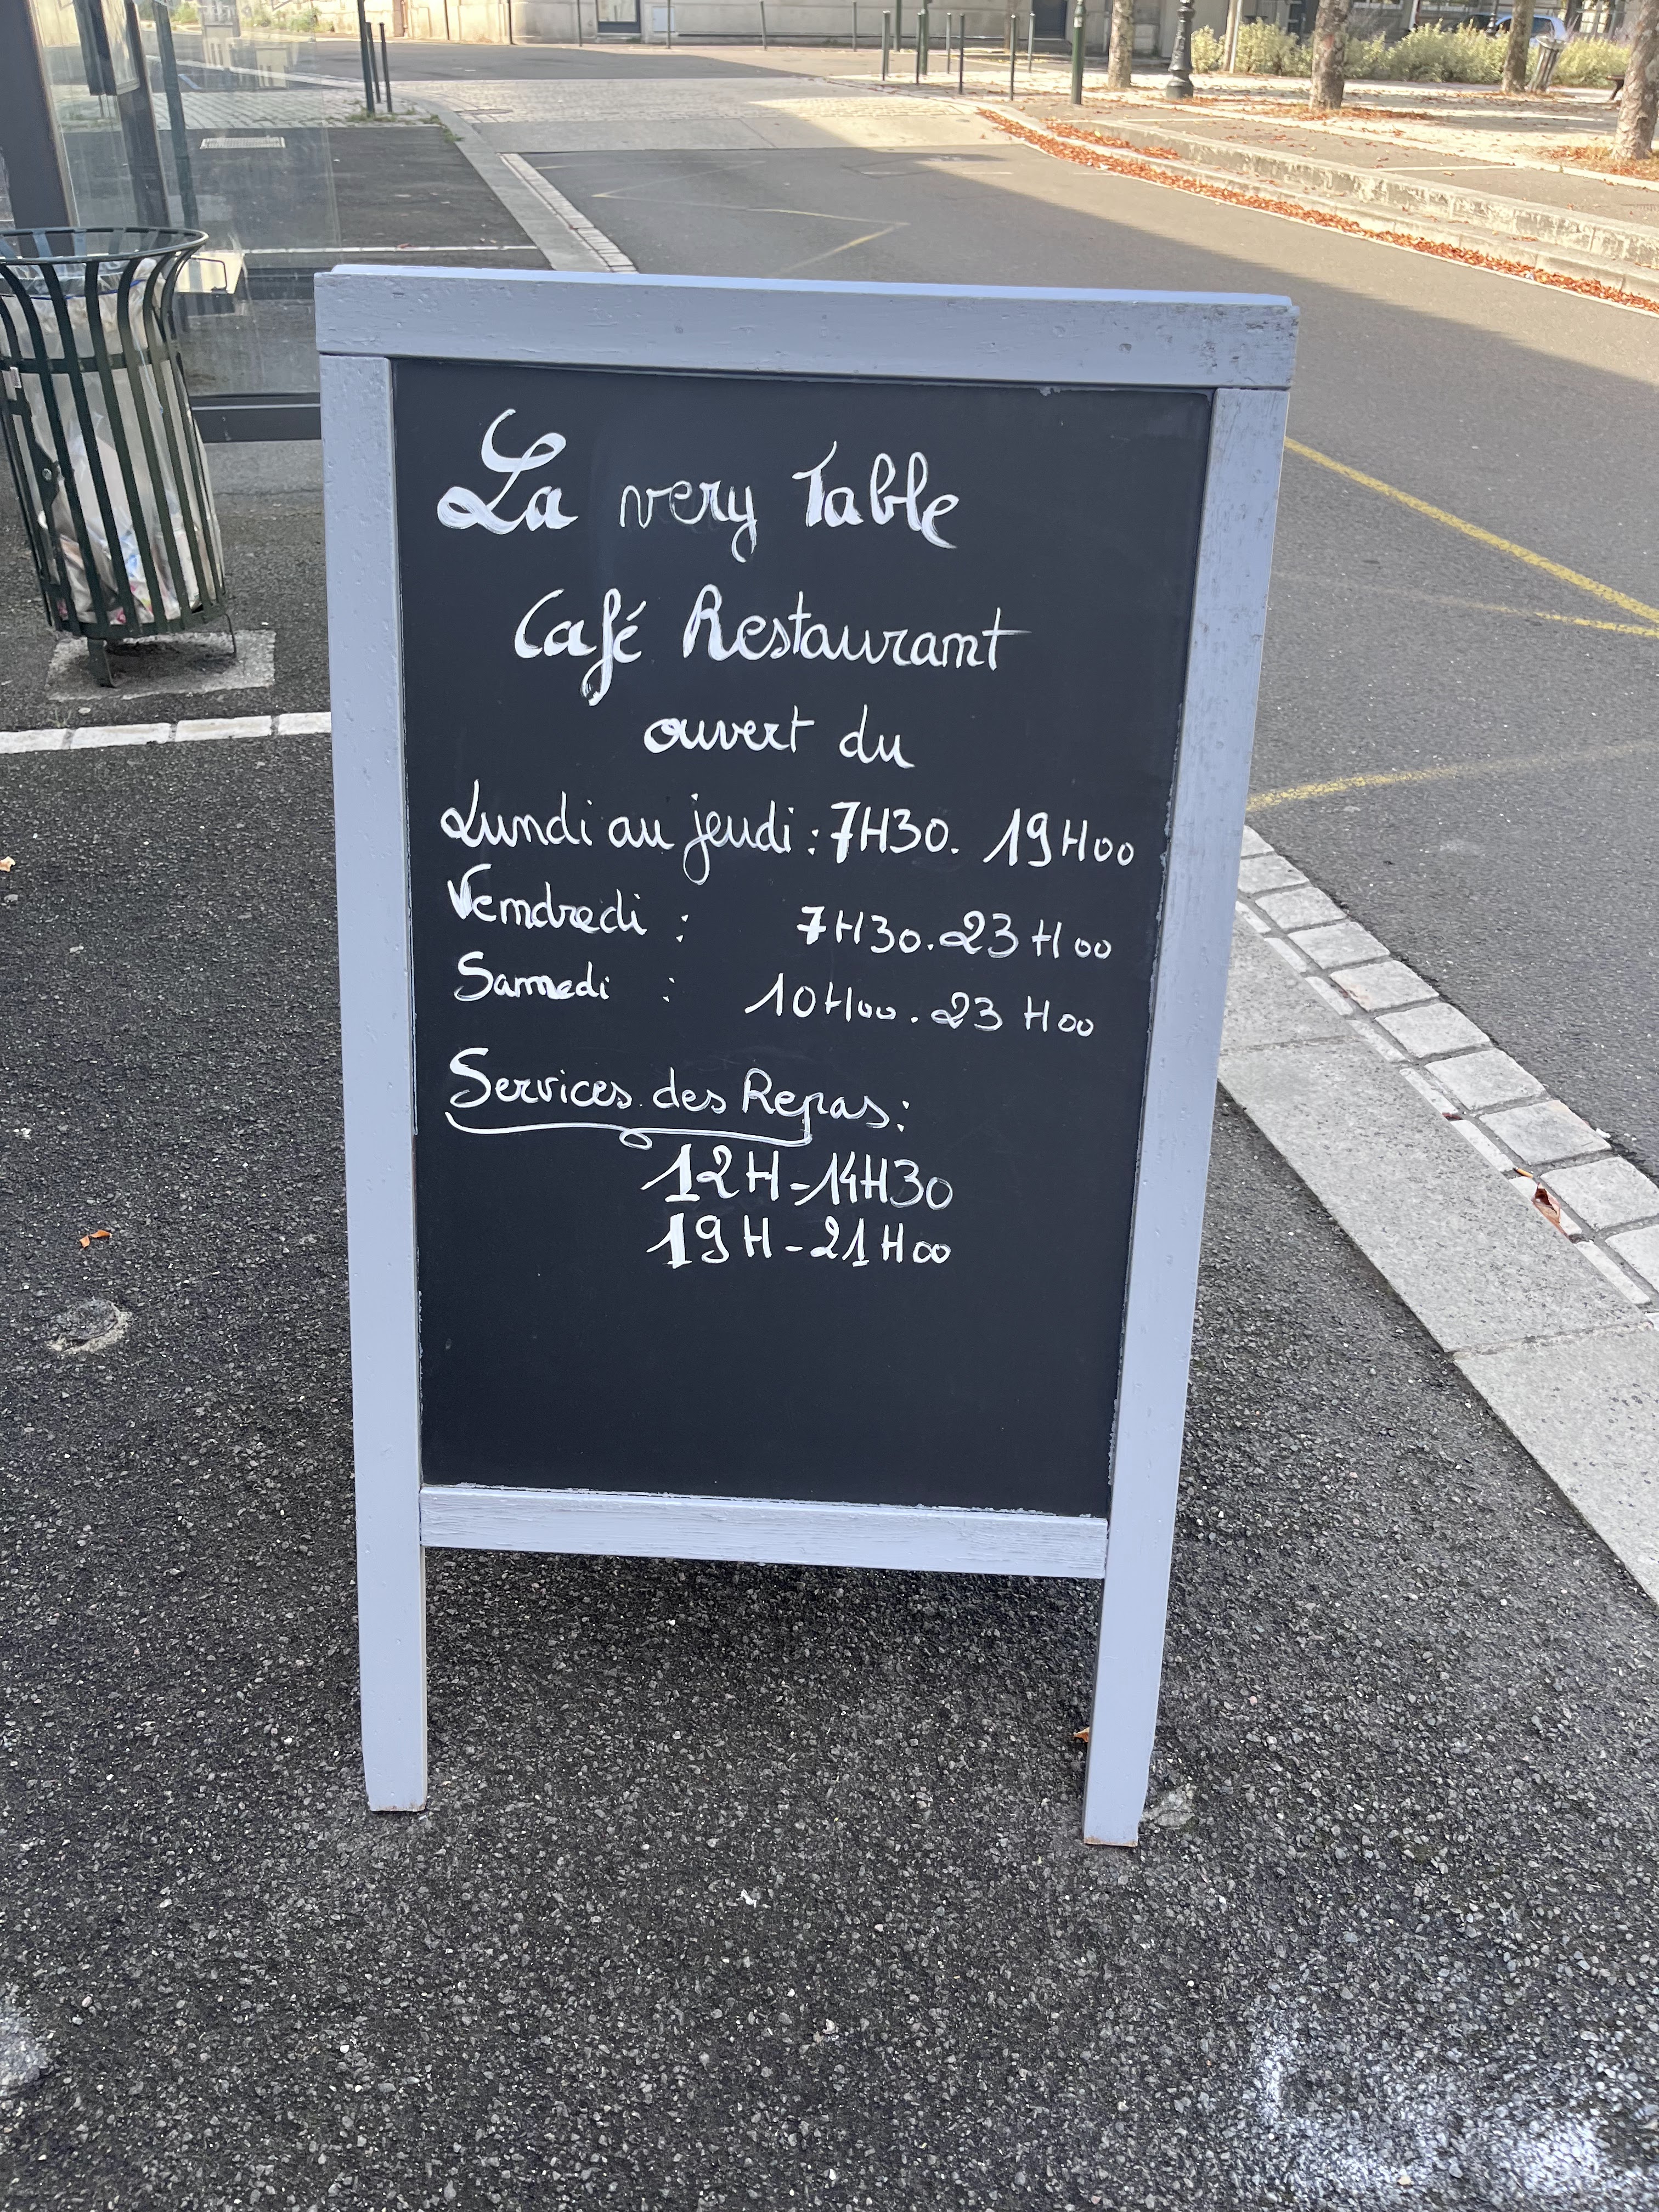 La very Table
Café Restaurant
ouvert du
Lundi au jeudi : 7H30. 19H00
Vendredi : 7H30.23H00
Samedi : 10H00.23H00
Services des Repas:
12H-14H30
19H-21H00